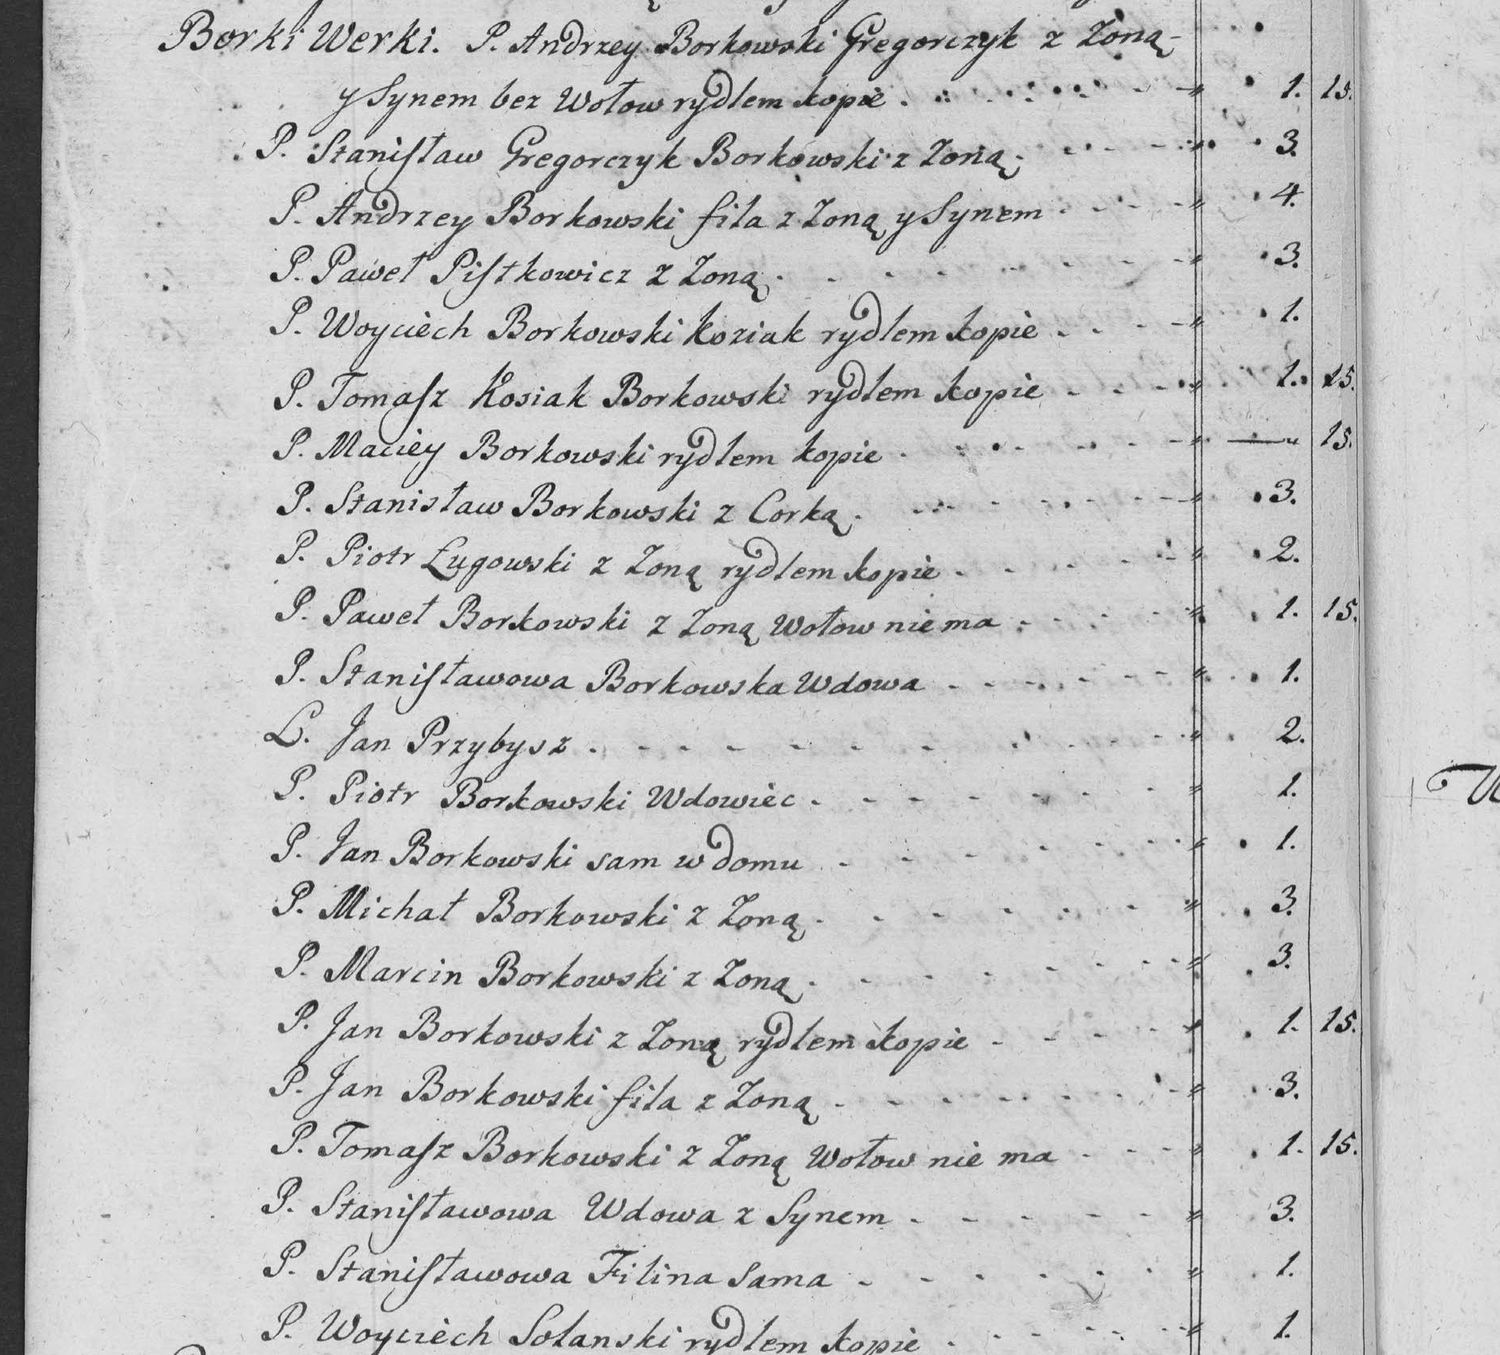 Borki Werki. P. Andrzey Borkowski Gregorczyk z Zoną
y Synem bez Wołow rydlem kopie 1. 15.
P. Stanisław Gregorczyk Borkowski z Zoną 3.
P. Andrzey Borkowski fila z Zoną y Synem 4.
P. Paweł Pistkowicz z Zoną 3.
P. Woyciech Borkowski Koziak rydlem kopie 1.
P. Tomasz Kosiak Borkowski rydlem kopie 1. 15.
P. Maciey Borkowski rydlem kopie — 15.
P. Stanisław Borkowski z Corką 3.
P. Piotr Ługowski z Zoną rydlem kopie 2.
P. Paweł Borkowski z Zoną Wołow niema 1. 15.
P. Stanisławowa Borkowska Wdowa 1.
L. Jan Przybysz 2.
P. Piotr Borkowski Wdowiec 1.
P. Jan Borkowski sam w domu 1.
P. Michał Borkowski z Zoną 3.
P. Marcin Borkowski z Zoną 3.
P. Jan Borkowski z Zoną rydlem kopie 1. 15.
P. Jan Borkowski fila z Zoną 3.
P. Tomasz Borkowski z Zoną Wołow nie ma 1. 15.
P. Stanisławowa Wdowa z Synem 3.
P. Stanisławowa Filina Sama 1.
P. Woyciech Solanski rydlem kopie 1.